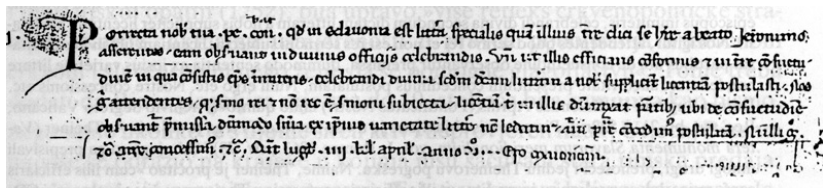 Porrecta nob̄ tua . pe . con . qd̄ in sclavonia est litt̄a sp̄ecialis quā illius t̄re cl̄ici se h̄re a beato Jeronimo
asserentes . eam obs̄uant in diuinis officijs celebrandis . Vn̄ ut illis efficiaris cōformis et in t̄re cōsuetu
dinē in qua cōsistis ep̄s imiteris . celebrandi diuina sc̄dm dc̄am litt̄am a nob̄ supplicit̄ licentiā postulasti . Nos
g̊ attendentes . q̄ s̄mo rei et nō res ē s̄moni subiecta . licentiā t̄ in illis dūtaxat ꝑtib; ubi de cōsuetudīe
obs̄uant̄ p̄missa dūmodo sn̄ia ex ip̄ius varietate litt̄e nō ledat̄ . auc̄te p̄tiū cōcedim̄ postulatā . Nulli g̊
nr̄e concessiōis . zc̄ . Dat̄ lugd̄ . iiii . kl̄ april̄ . Anno